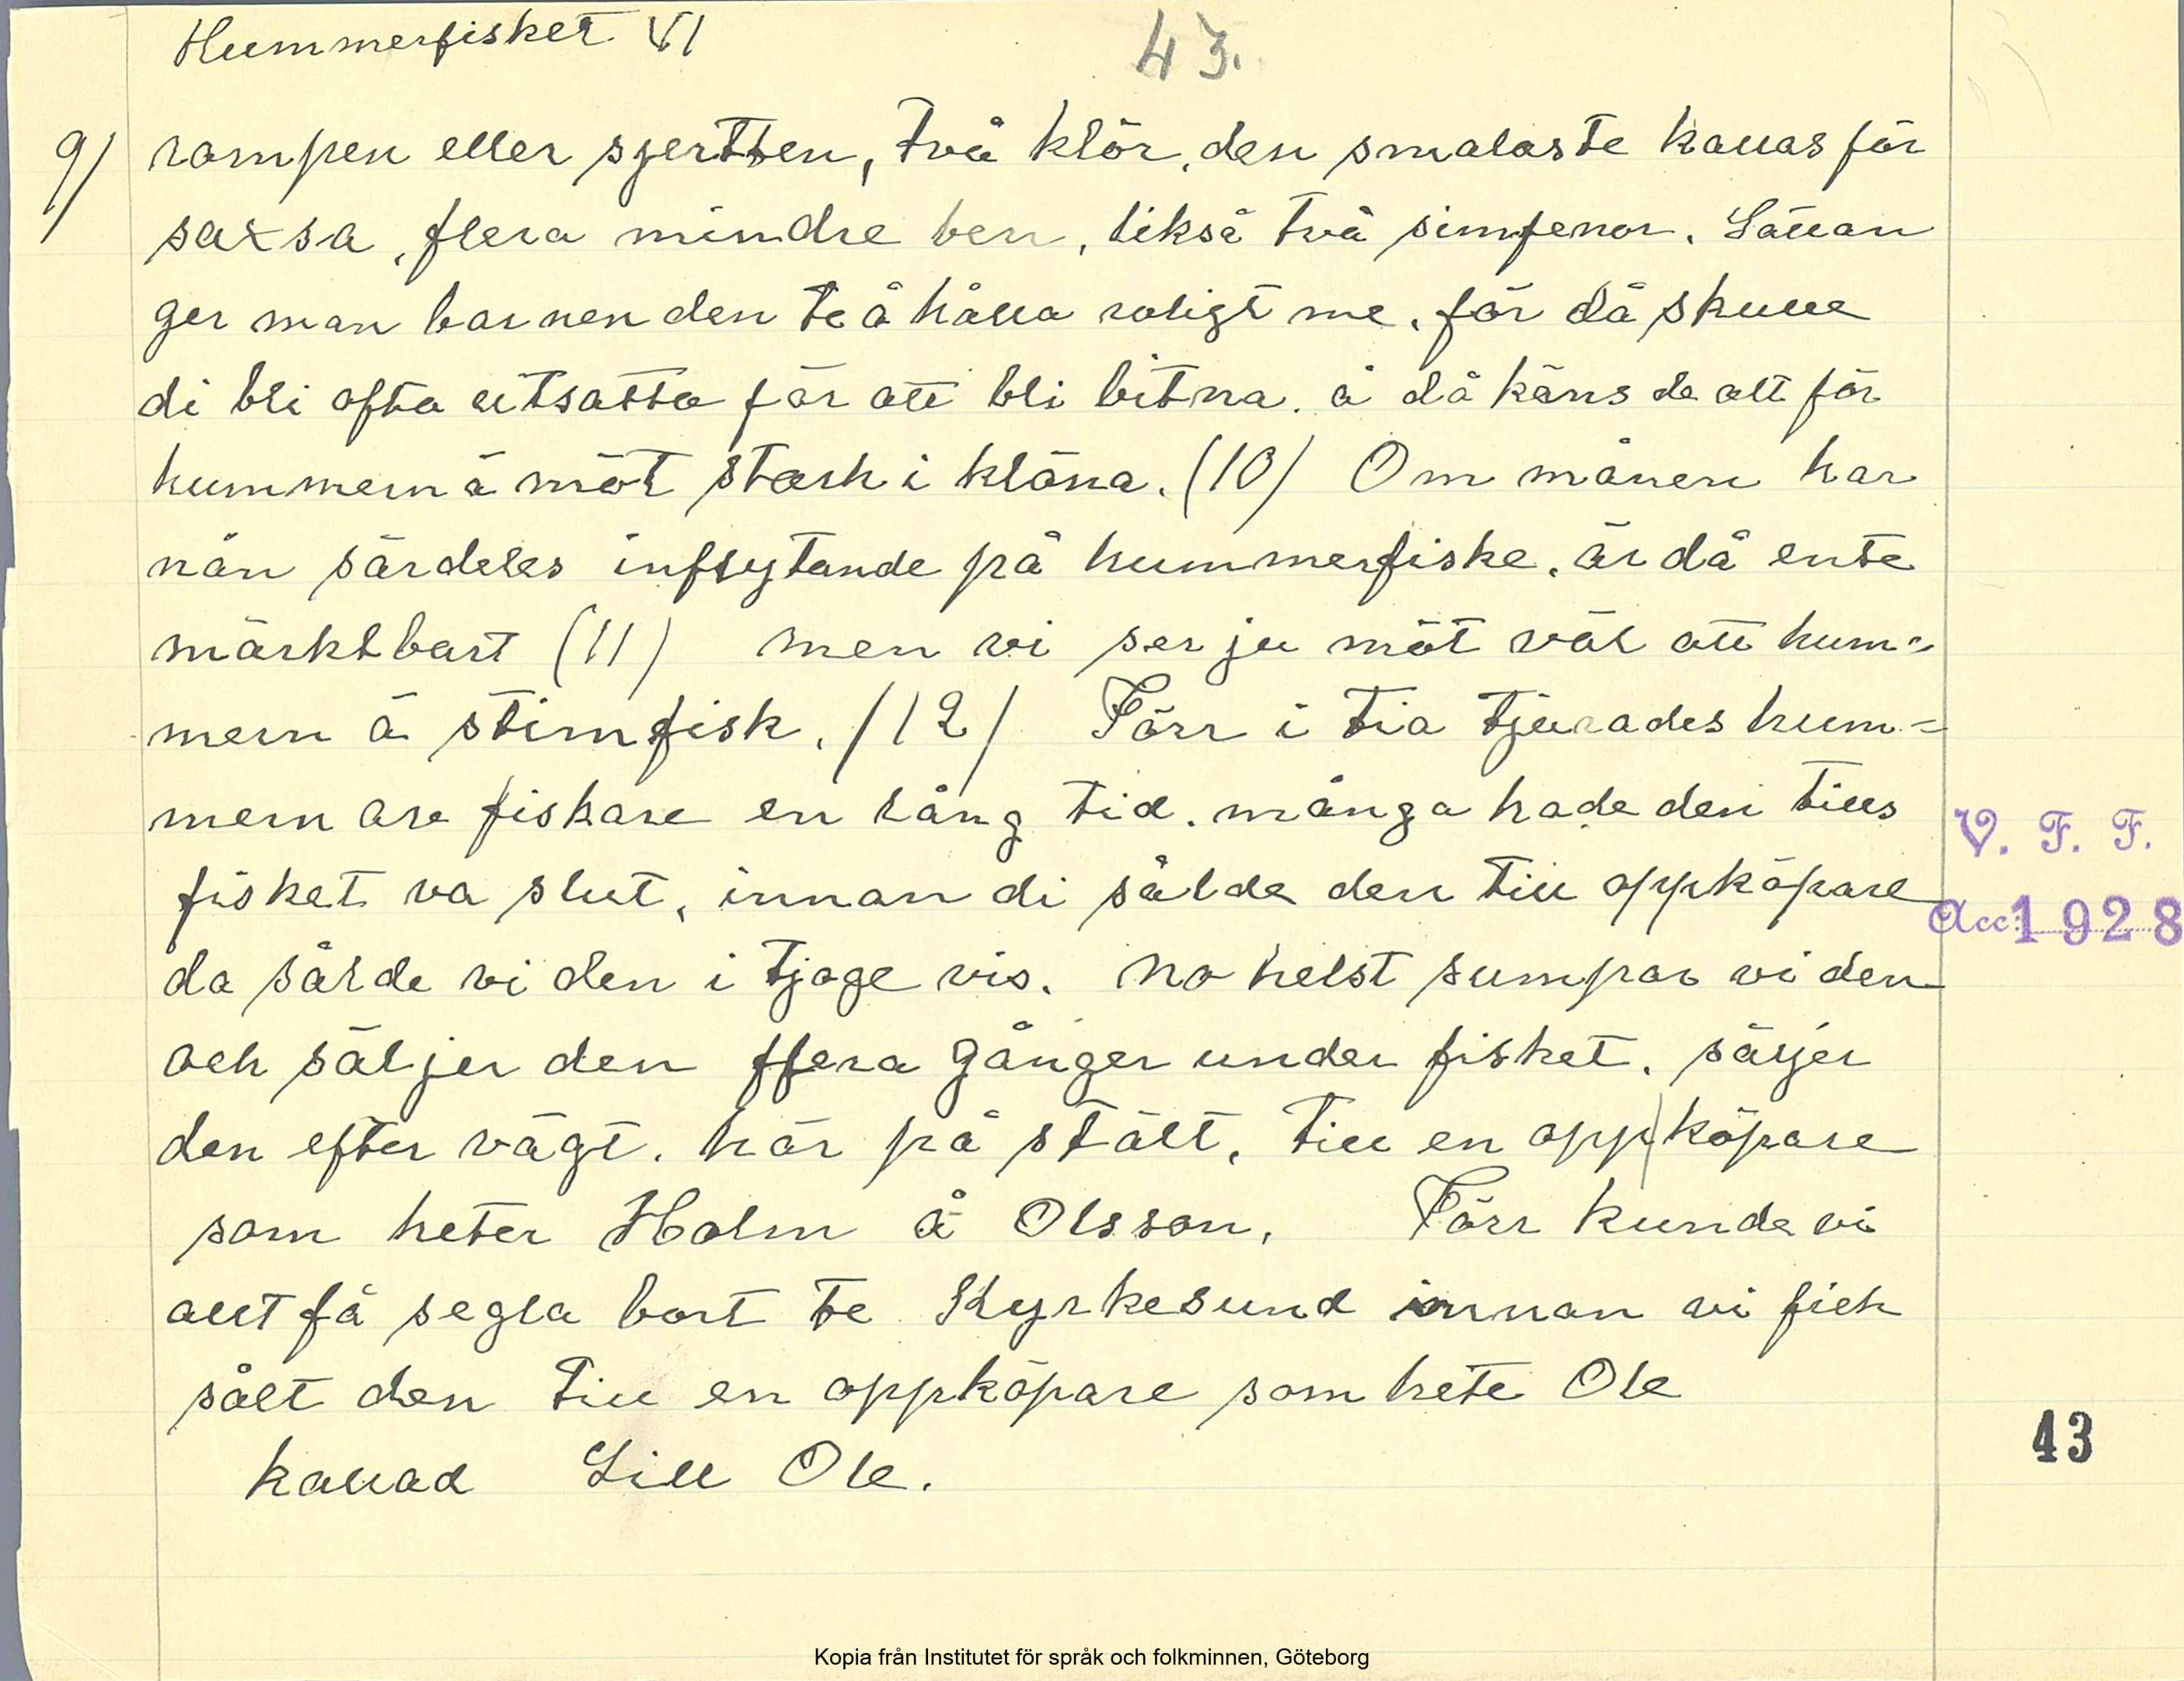 Hummerfisket VI
43.
9/ rompen eller sjertten, två klör, den smalaste kallas för
saxsa, flera mindre ben, likså två simfenor. Sällan
ger man barnen den te å hålla roligt me, för då skulle
di bli ofta utsatta för att bli bitna. å då käns de allt för
hummern ä möt stark i klöna. (10) Om månen har
nån särdeles inflytande på hummerfiske, är då ente
märktbart (11) men vi ser ju möt väl att hum=
mern ä stimfisk. (12) Förr i tia tjurades hum=
mern are fiskare en lång tid. många hade den tills
fisket va slut, innan di sålde den till oppköpare
V. F. F.
Acc: 1928
da sålde vi den i tjoge vis. No helst sumpar vi den
och säljer den flera gånger under fisket. säljer
den efter vägt. här på stält, till en oppköpare
som heter Holm å Olsson. Förr kunde vi
allt få segla bort te Kyrkesund innan vi fick
sålt den till en oppköpare som hete Ole
kallad Lill Ole.
43
Kopia från Institutet för språk och folkminnen, Göteborg